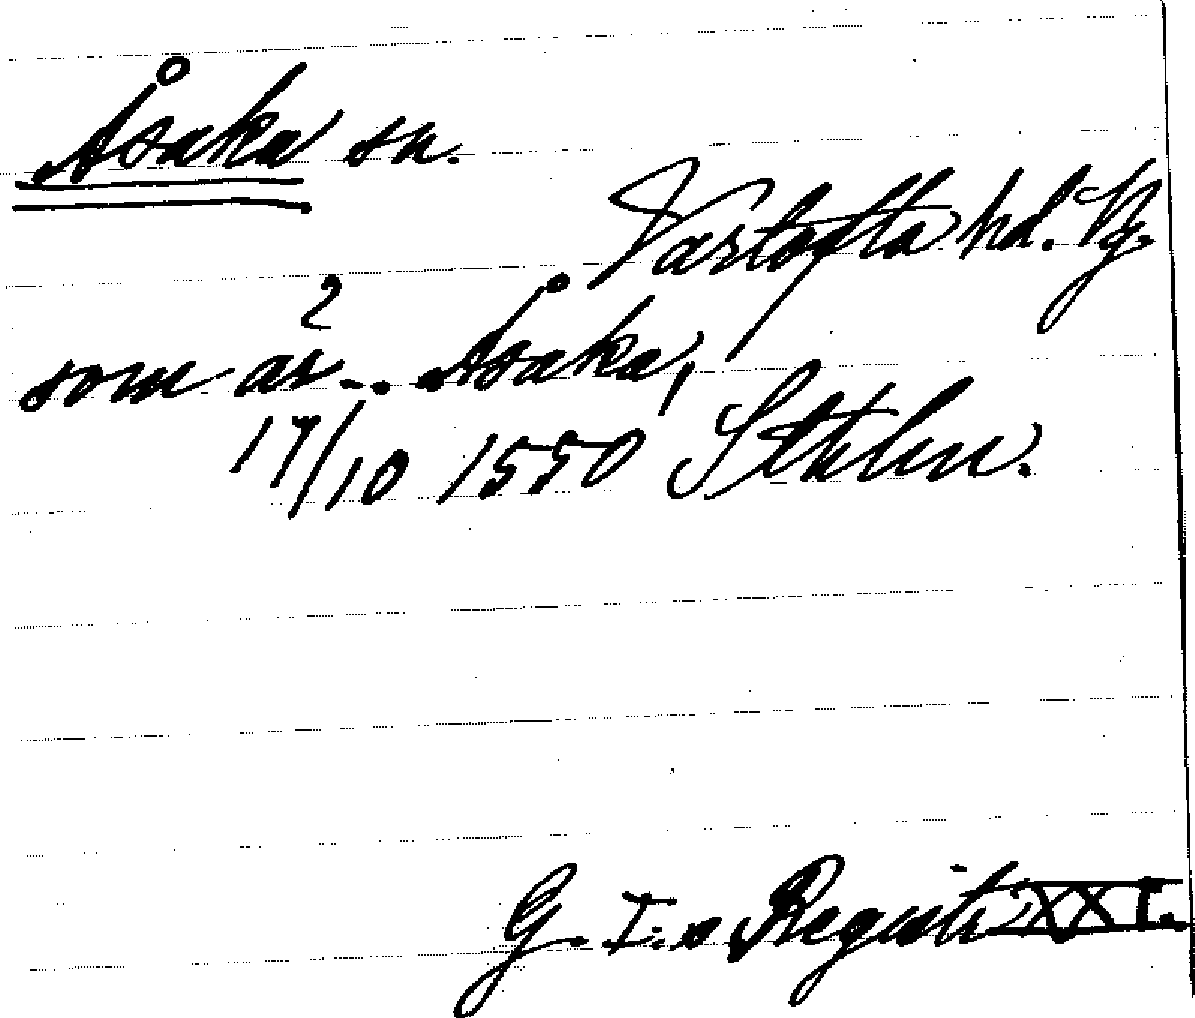 Åsaka sn.
Vartofta hd. Vg.
som är .. Åsaka,
17/10 1550 Sthlm.
G. I:s Registr. XXI.